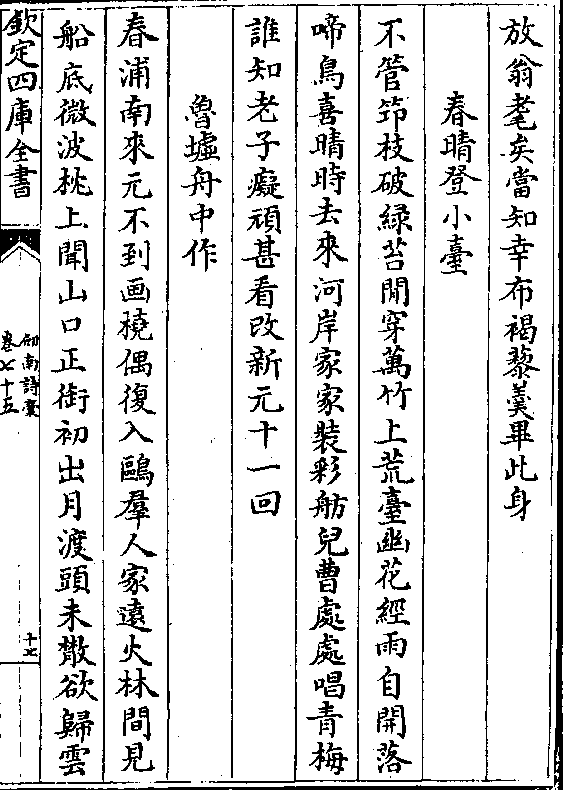 放翁耄矣當知幸布褐藜羮畢此身
春晴登小臺
不管笻枝破緑苔閒穿萬竹上荒臺幽花經雨自開落
啼鳥喜晴時去來河岸家家裝彩舫兒曹處處唱青梅
誰知老子癡頑甚看改新元十一回
魯墟舟中作
春浦南來元不到画橈偶復入鷗羣人家遠火林間見
船底微波枕上聞山口正銜初出月渡頭未散欲歸雲
欽定四庫全書
劒南詩稾
卷七十五
十七